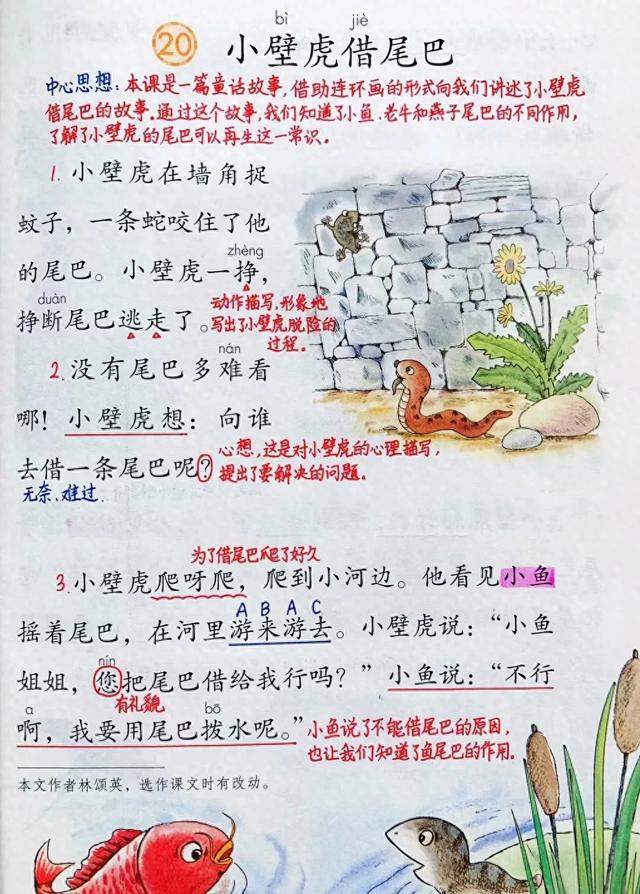 bì jiè
20 小壁虎借尾巴
中心思想：本课是一篇童话故事，借助连环画的形式向我们讲述了小壁虎
借尾巴的故事。通过这个故事，我们知道了小鱼、老牛和燕子尾巴的不同作用，
了解了小壁虎的尾巴可以再生这一常识。
1. 小壁虎在墙角捉
蚊子，一条蛇咬住了他
zhèng
的尾巴。小壁虎一挣，
duàn
挣断尾巴逃走了。
动作描写，形象地
写出了小壁虎脱险的
过程。
nán
2. 没有尾巴多难看
哪！小壁虎想：向谁
去借一条尾巴呢？
心想，这是对小壁虎的心理描写，
提出了要解决的问题。
无奈、难过
为了借尾巴爬了好久
3. 小壁虎爬呀爬，爬到小河边。他看见小鱼
A B A C
摇着尾巴，在河里游来游去。小壁虎说：“小鱼
nín
姐姐，您把尾巴借给我行吗？”小鱼说：“不行
有礼貌
a bō
啊，我要用尾巴拨水呢。”
小鱼说了不能借尾巴的原因，
也让我们知道了鱼尾巴的作用.
本文作者林颂英，选作课文时有改动。